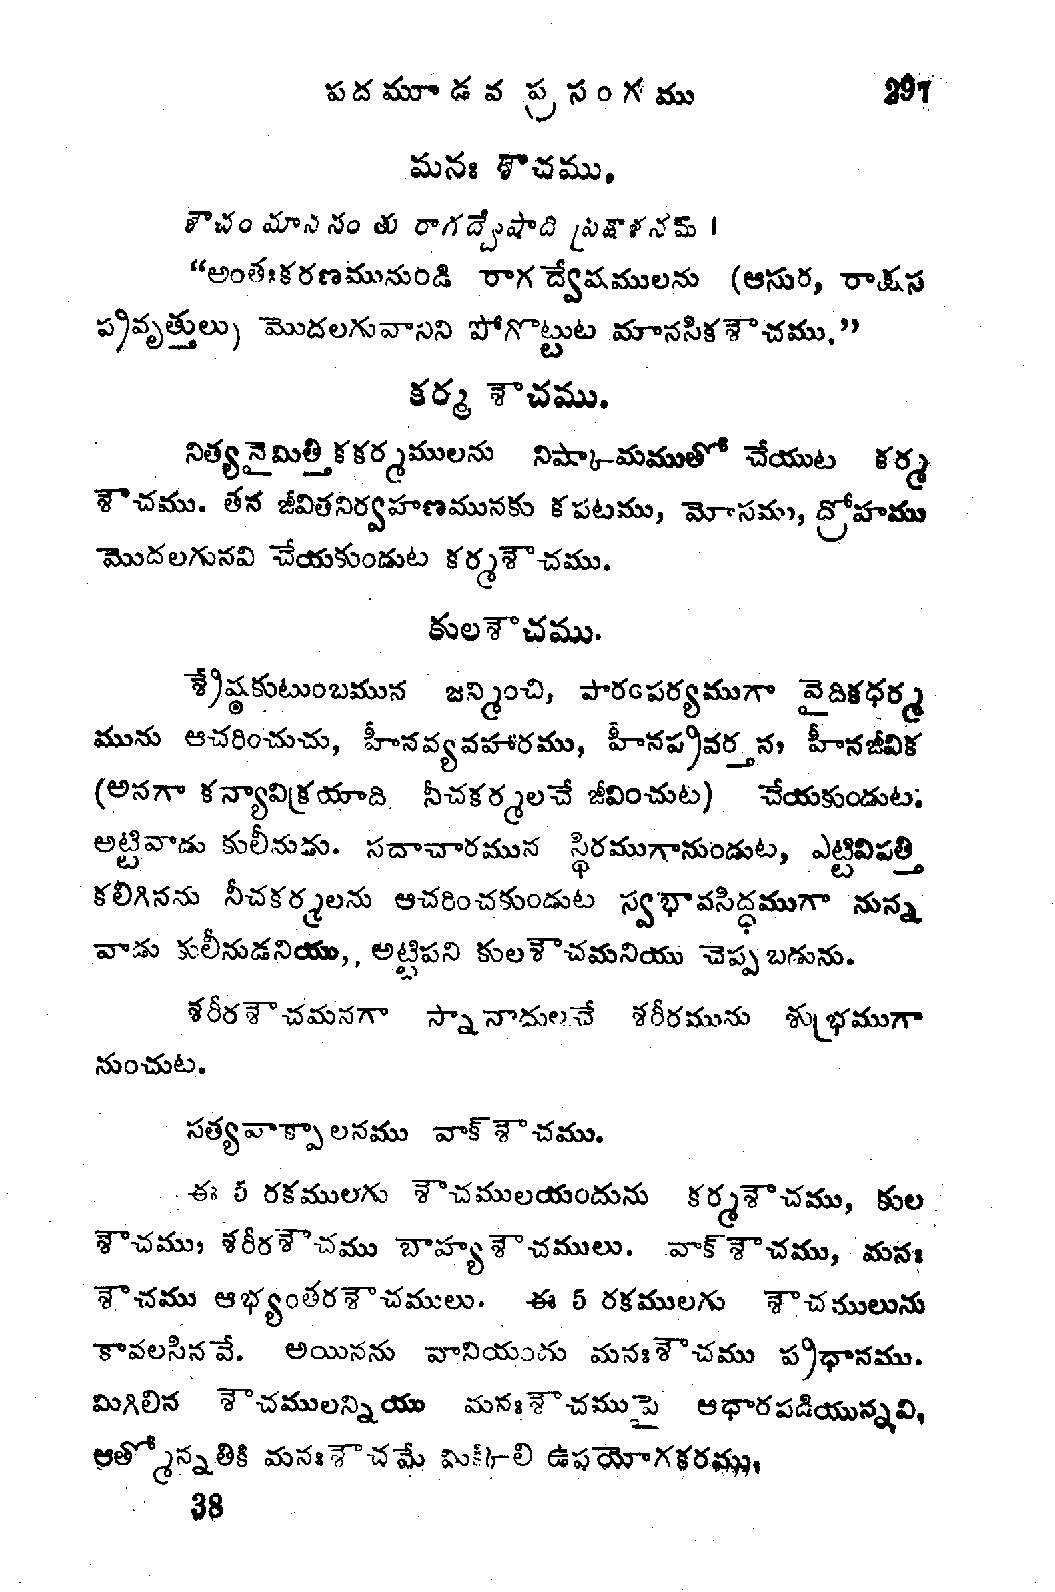 పదమూడవ ప్రసంగము 297
మనః శౌచము.
శౌచం మానసం తు రాగద్వేషాది ప్రక్షాళనమ్ ।
“అంతఃకరణమునుండి రాగద్వేషములను (ఆసుర, రాక్షస
ప్రవృత్తులు) మొదలగువానిని పోగొట్టుట మానసికశౌచము.”
కర్మ శౌచము.
నిత్యనైమిత్తికకర్మములను నిష్కామముతో చేయుట కర్మ
శౌచము. తన జీవితనిర్వహణమునకు కపటము, మోసము, ద్రోహము
మొదలగునవి చేయకుండుట కర్మశౌచము.
కులశౌచము.
శ్రేష్ఠకుటుంబమున జన్మించి, పారంపర్యముగా వైదికధర్మ
మును ఆచరించుచు, హీనవ్యవహారము, హీనప్రవర్తన, హీనజీవిక
(అనగా కన్యావిక్రయాది నీచకర్మలచే జీవించుట) చేయకుండుట;
అట్టివాడు కులీనుడు. సదాచారమున స్థిరముగానుండుట, ఎట్టివిపత్తి
కలిగినను నీచకర్మలను ఆచరించకుండుట స్వభావసిద్ధముగా నున్న
వాడు కులీనుడనియు,, అట్టిపని కులశౌచమనియు చెప్పబడును.
శరీరశౌచమనగా స్నానాదులచే శరీరమును శుభ్రముగా
నుంచుట.
సత్యవాక్పాలనము వాక్‌శౌచము.
ఈ 5 రకములగు శౌచములయందును కర్మశౌచము, కుల
శౌచము, శరీరశౌచము బాహ్యశౌచములు. వాక్‌శౌచము, మనః
శౌచము ఆభ్యంతరశౌచములు. ఈ 5 రకములగు శౌచములును
కావలసినవే. అయినను వానియందు మనఃశౌచము ప్రధానము.
మిగిలిన శౌచములన్నియు మనఃశౌచముపై ఆధారపడియున్నవి,
ఆత్మోన్నతికి మనఃశౌచమే మిక్కిలి ఉపయోగకరము,
38